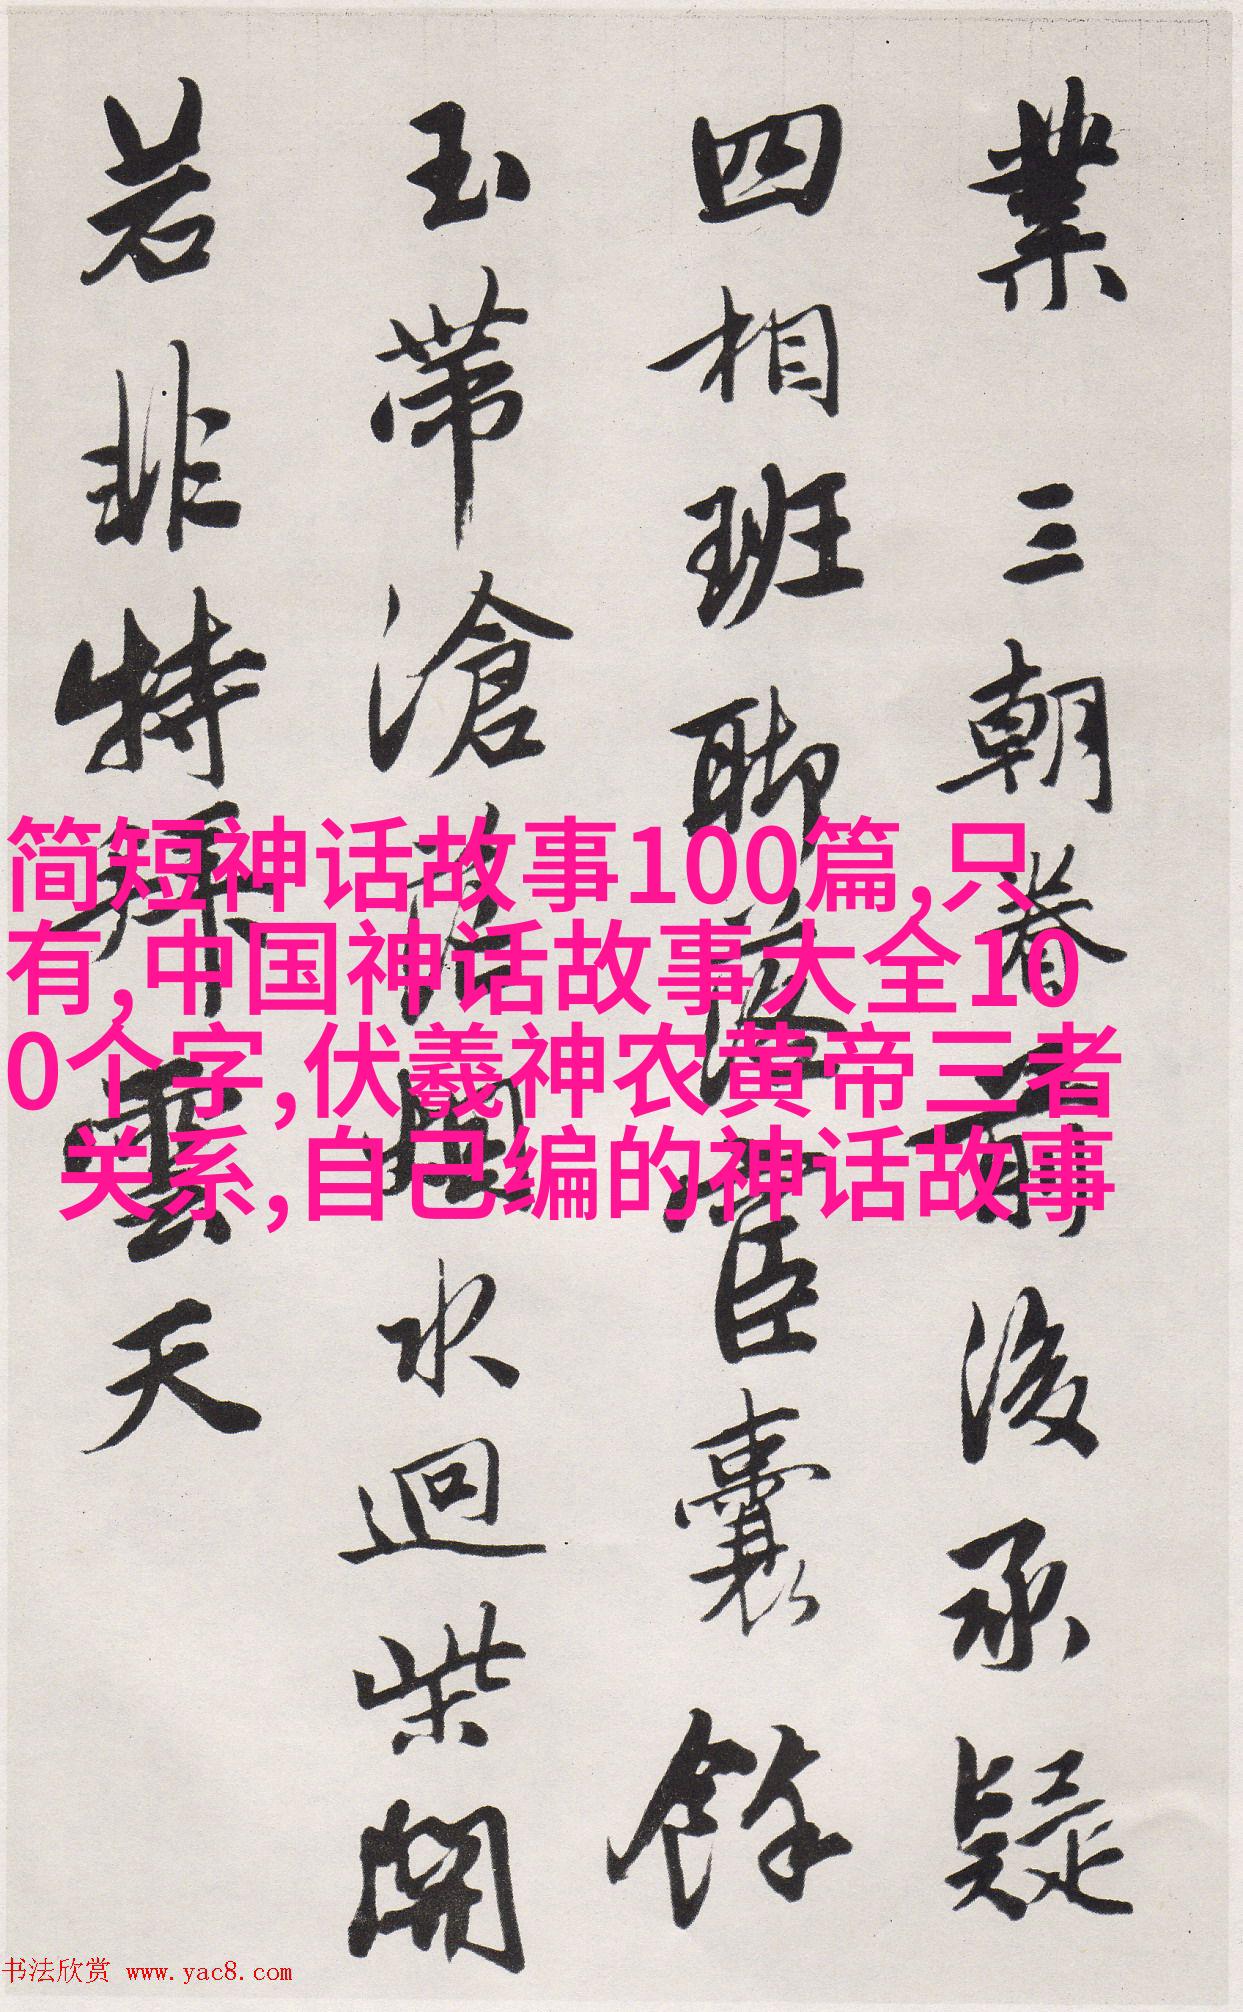 業 三朝眷前後承疑
四相班聊落宦囊餘
玉帶滄水迴柴開
若非特拜雲天
简短神话故事100篇,只
有,中国神话故事大全10
0个字,伏羲神农黄帝三者
关系,自己编的神话故事
书法欣赏 www.yac8.com